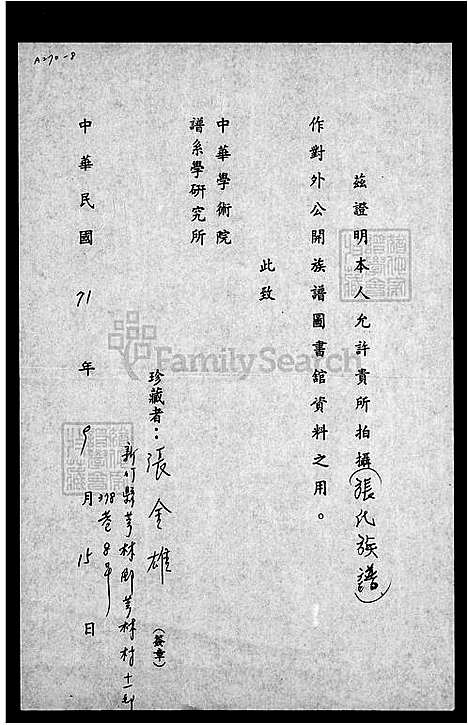 A270-8
茲證明本人允許貴所拍攝(張氏族譜)
作對外公開族譜圖書舘資料之用。
此致
中華學術院
譜系學研究所
珍藏者：張金雄(簽章)
新竹縣芎林鄉芎林村十一鄰
398巷8号
中華民國71年9月15日
FamilySearch